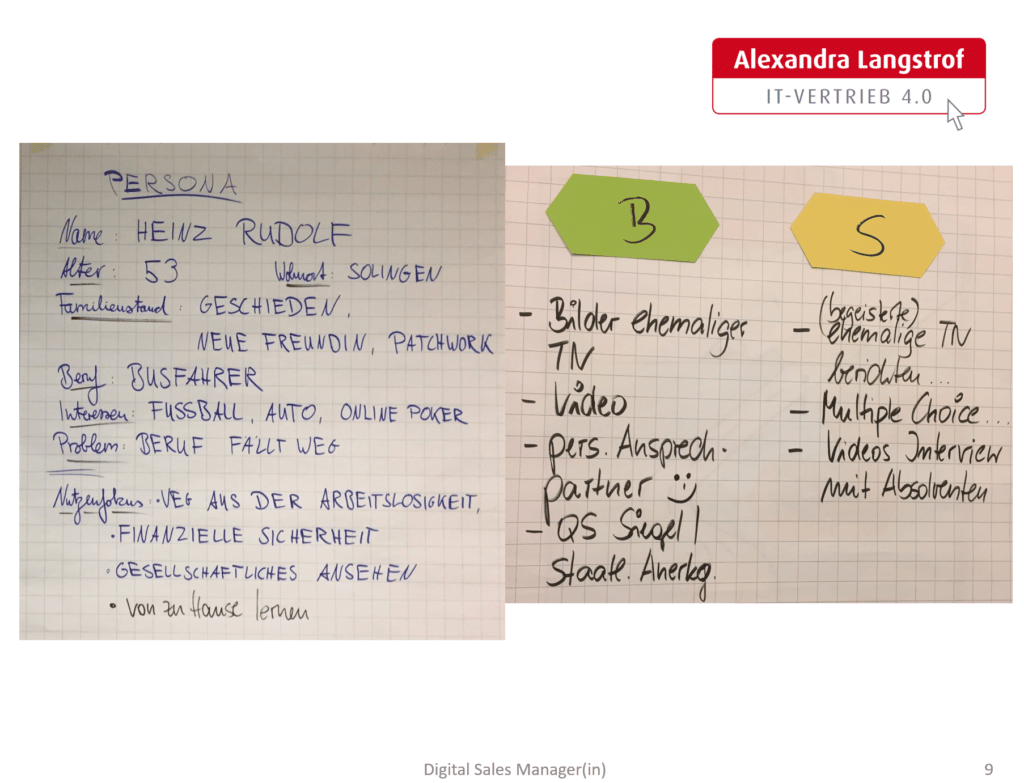 Alexandra Langstrof
IT-VERTRIEB 4.0
PERSONA
Name: HEINZ RUDOLF
Alter: 53 Wohnort: SOLINGEN
Familienstand: GESCHIEDEN,
NEUE FREUNDIN, PATCHWORK
Beruf: BUSFAHRER
Interessen: FUSSBALL, AUTO, ONLINE POKER
Problem: BERUF FÄLLT WEG
Nutzenfokus: · WEG AUS DER ARBEITSLOSIGKEIT,
· FINANZIELLE SICHERHEIT
· GESELLSCHAFTLICHES ANSEHEN
· von zu Hause lernen
B
- Bilder ehemaliger
TN
- Video
- pers. Ansprech-
partner
- QS Siegel /
Staatl. Anerkg.
S
(begeisterte)
- ehemalige TN
berichten...
- Multiple Choice...
- Videos Interview
mit Absolventen
Digital Sales Manager(in)
9